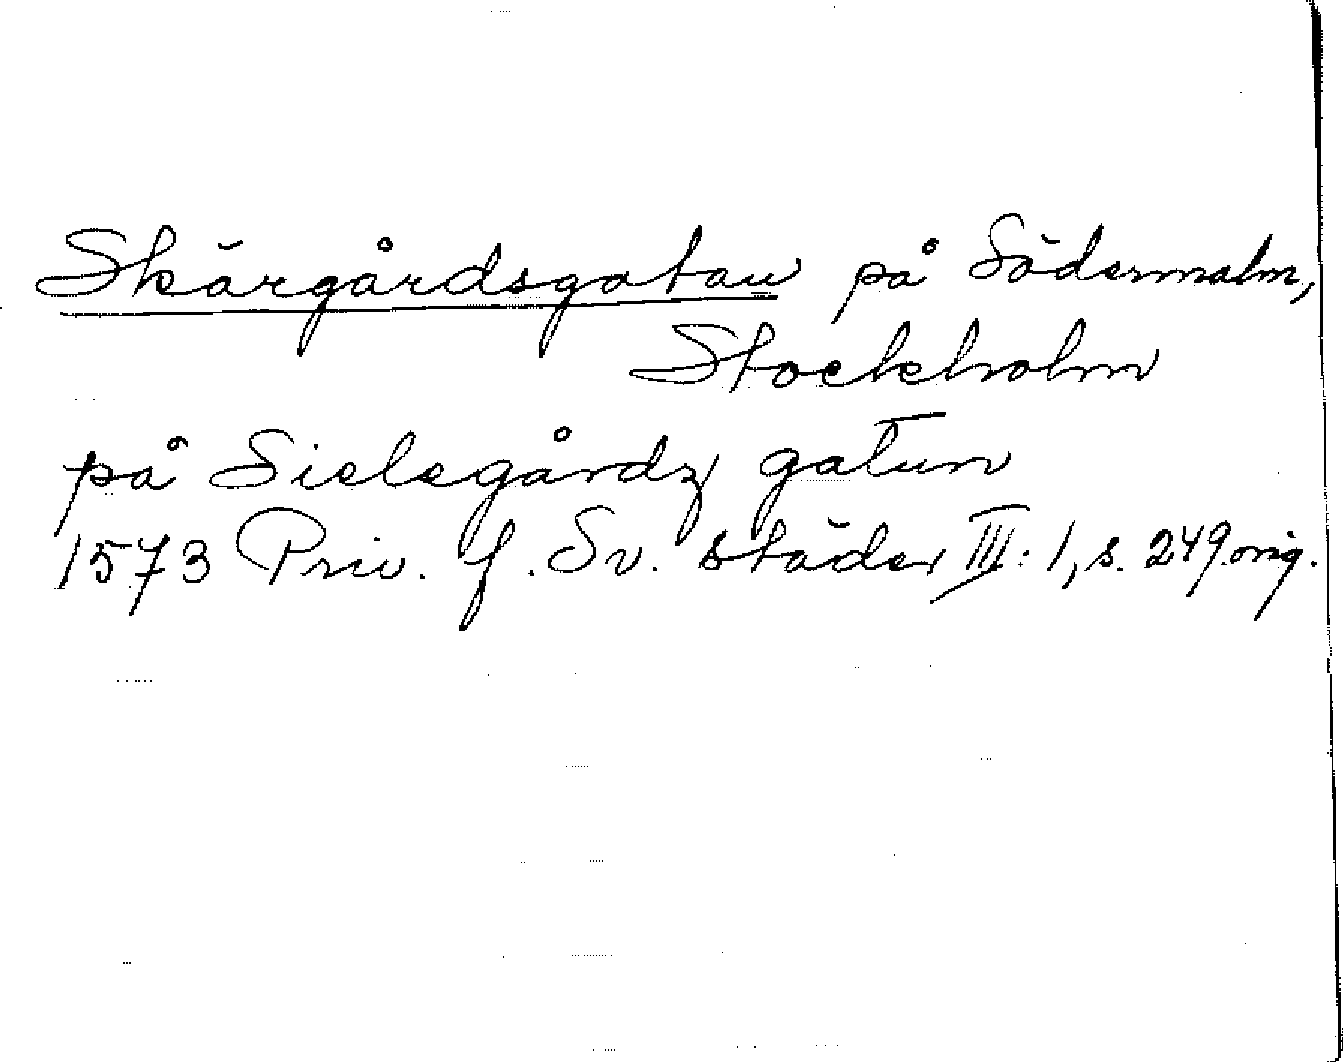 Skärgårdsgatan på Södermalm,
Stockholm
på Sielegårdz gatun
1573 Priv. f. Sv. städer III: 1, s. 249 orig.